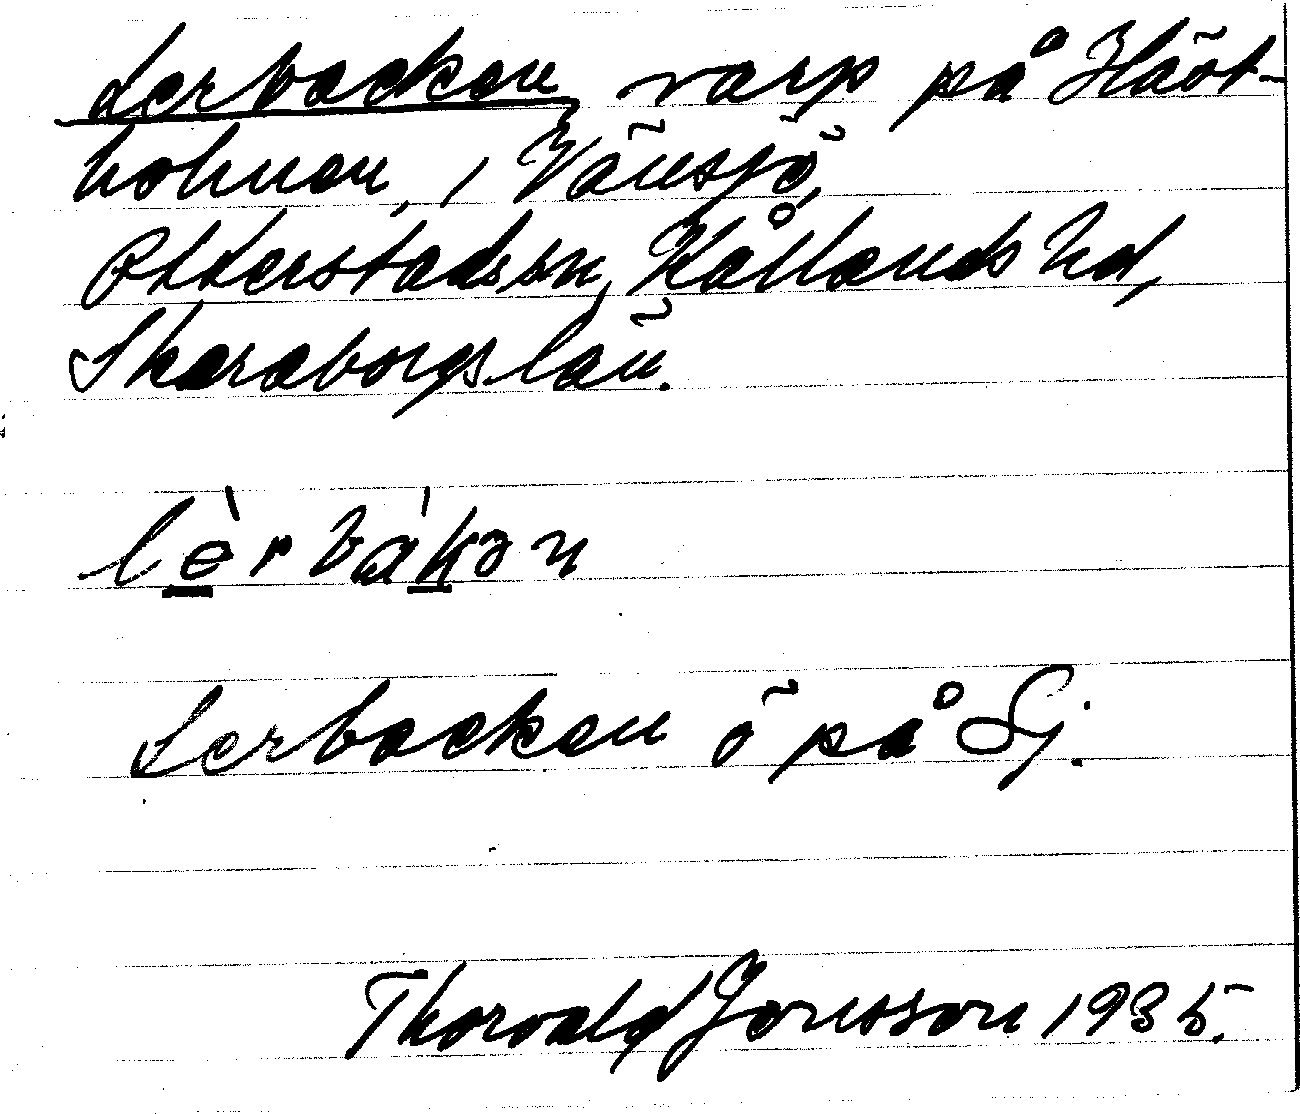 Lerbacken, varp på Häst-
holmen, i Vänsjö,
Otterstads sn, Kållands hd,
Skaraborgs län.
lèrbákən
Lerbacken ö på Sj.
Thorvald Jonsson 1935.